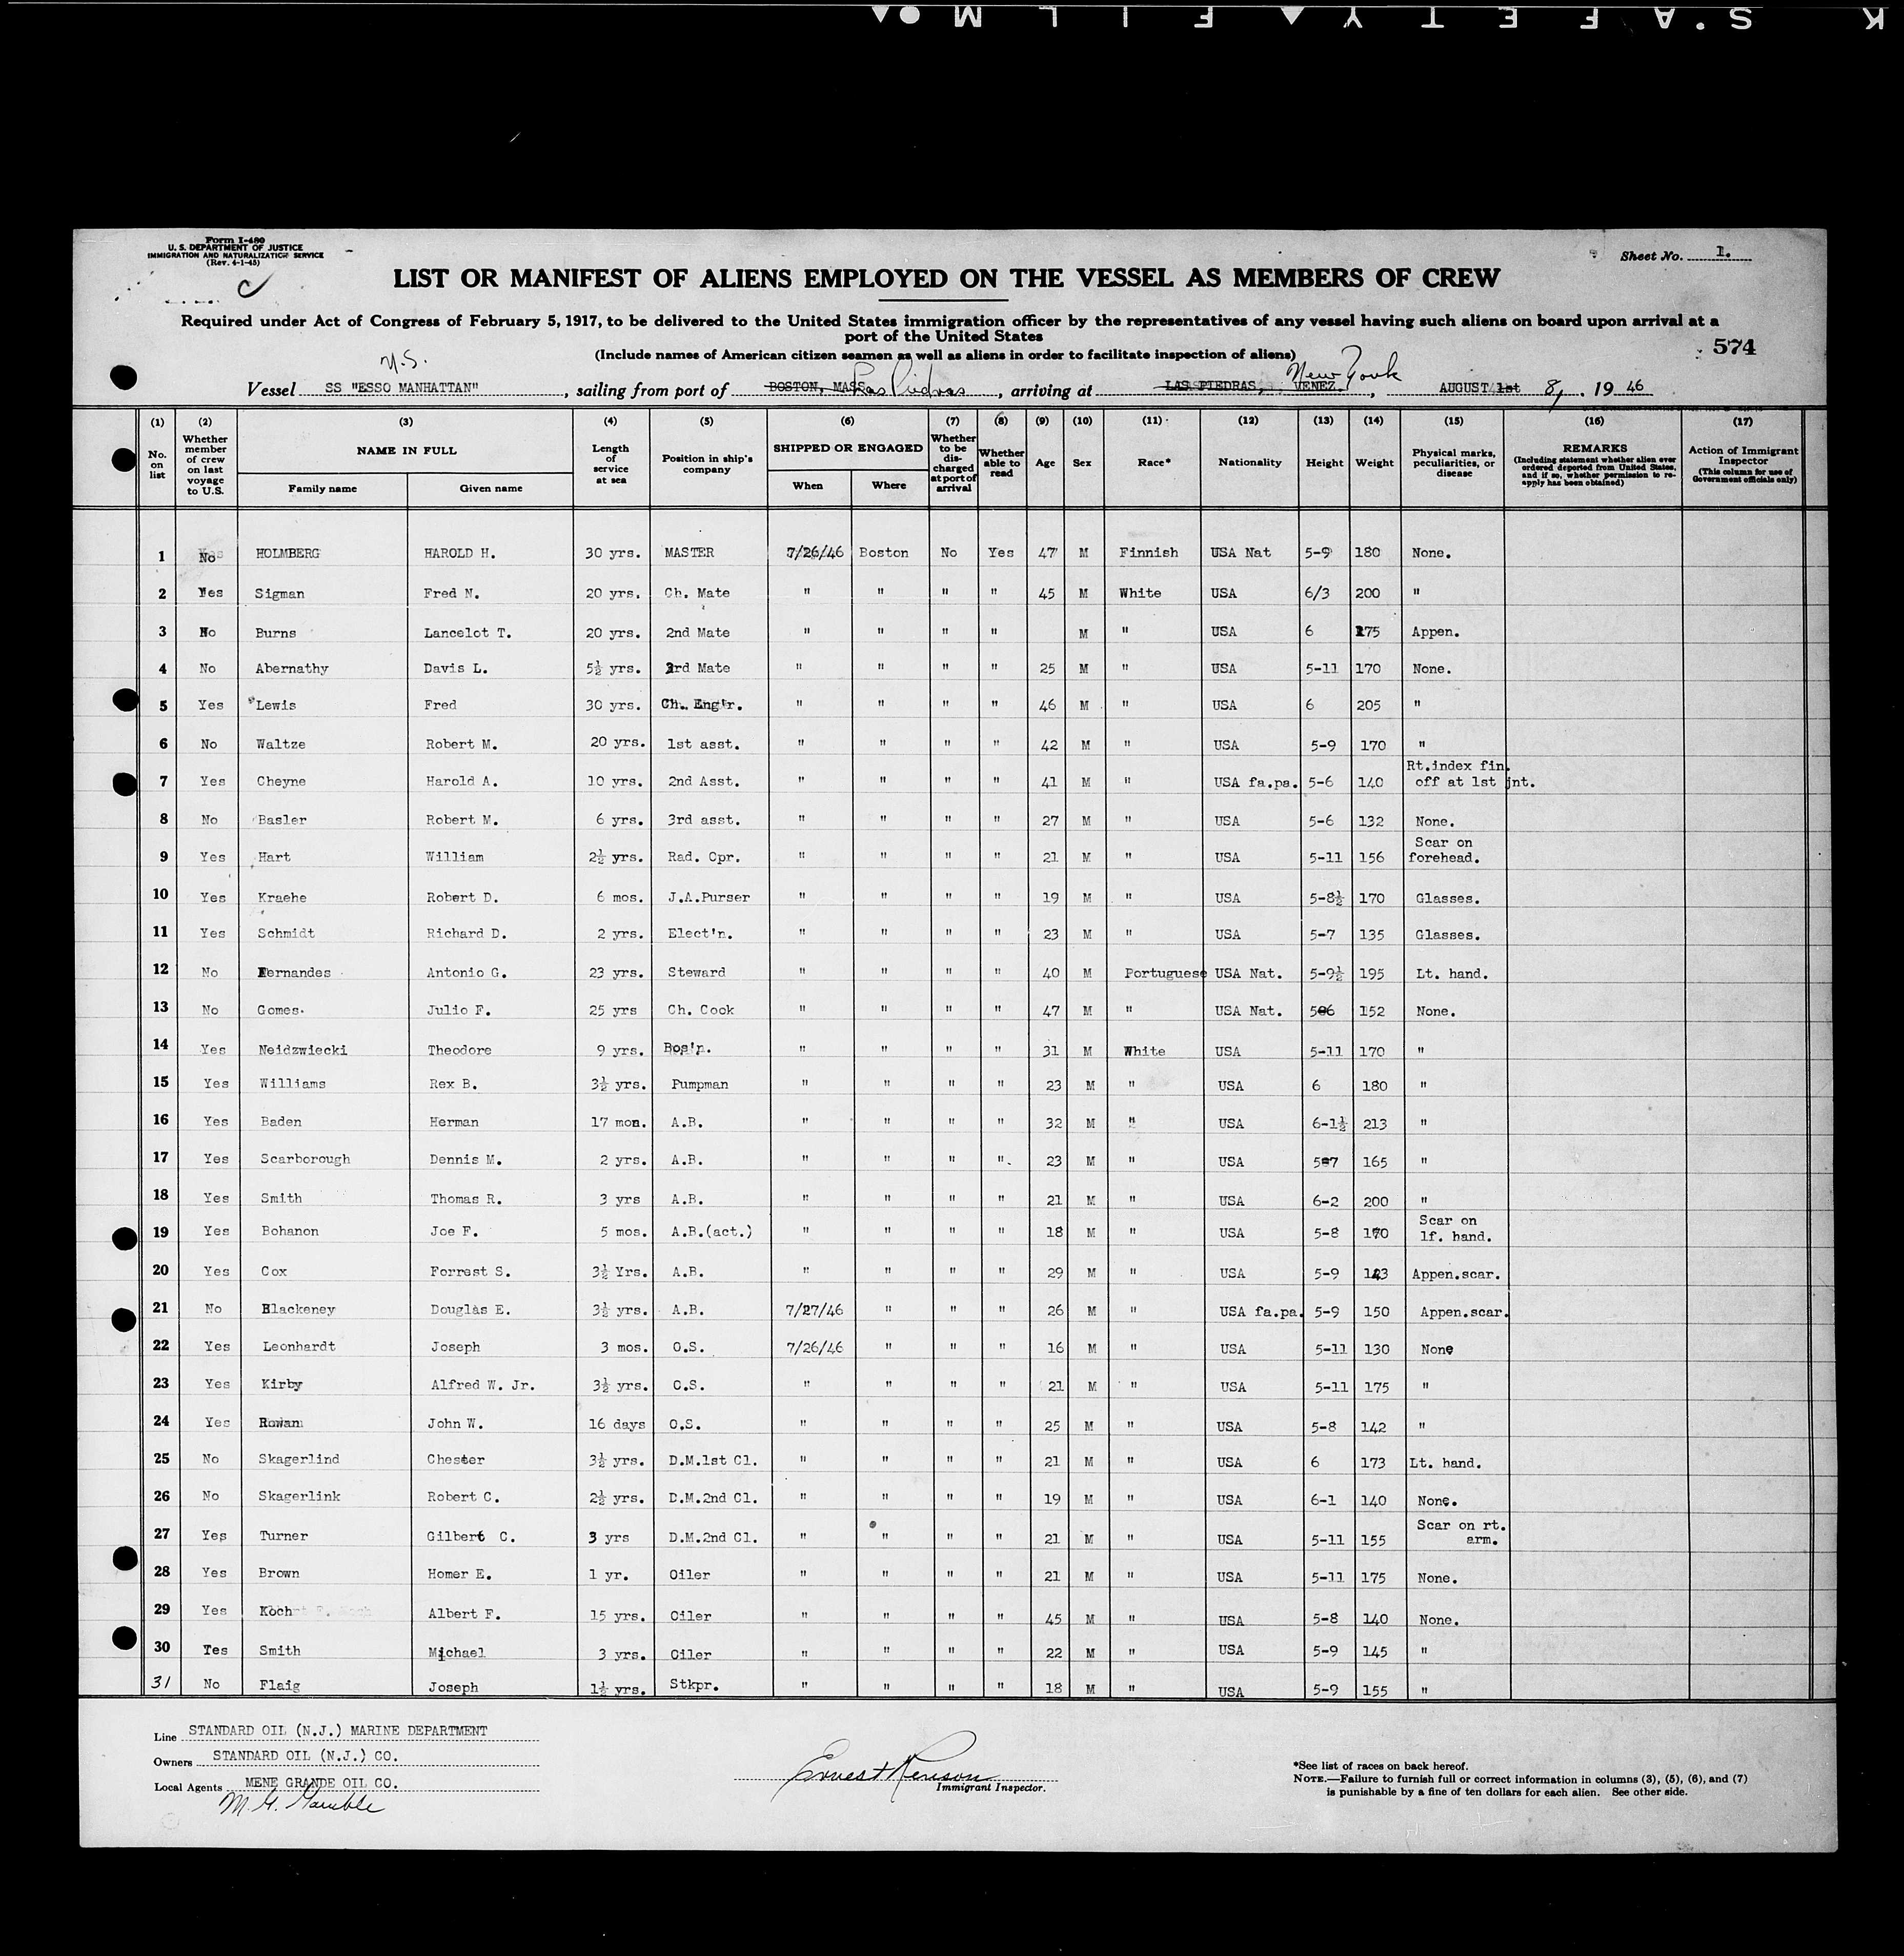 K S'AFETY FILM
Form I-480
U. S. DEPARTMENT OF JUSTICE
IMMIGRATION AND NATURALIZATION SERVICE
(Rev. 4-1-45)
Sheet No. 1.
C
LIST OR MANIFEST OF ALIENS EMPLOYED ON THE VESSEL AS MEMBERS OF CREW
Required under Act of Congress of February 5, 1917, to be delivered to the United States immigration officer by the representatives of any vessel having such aliens on board upon arrival at a
port of the United States
(Include names of American citizen seamen as well as aliens in order to facilitate inspection of aliens)
574
U.S. Las Piedras New York
Vessel SS "ESSO MANHATTAN", sailing from port of BOSTON, MASS, arriving at LAS PIEDRAS, VENEZ., AUGUST 1st 8, 19 46
(1) (2) (3) (4) (5) (6) (7) (8) (9) (10) (11) (12) (13) (14) (15) (16) (17)
No. on list
Whether member of crew on last voyage to U.S.
NAME IN FULL
Family name
Given name
Length of service at sea
Position in ship's company
SHIPPED OR ENGAGED
When
Where
Whether to be discharged at port of arrival
Whether able to read
Age
Sex
Race*
Nationality
Height
Weight
Physical marks, peculiarities, or disease
REMARKS
(Including statement whether alien ever ordered deported from United States, and if so, whether permission to re-apply has been obtained)
Action of Immigrant Inspector
(This column for use of Government officials only)
1 No HOLMBERG HAROLD H. 30 yrs. MASTER 7/26/46 Boston No Yes 47 M Finnish USA Nat 5-9 180 None.
2 Yes Sigman Fred N. 20 yrs. Ch. Mate " " " " 45 M White USA 6/3 200 "
3 No Burns Lancelot T. 20 yrs. 2nd Mate " " " " M " USA 6 175 Appen.
4 No Abernathy Davis L. 5½ yrs. 3rd Mate " " " " 25 M " USA 5-11 170 None.
5 Yes Lewis Fred 30 yrs. Ch. Eng'r. " " " " 46 M " USA 6 205 "
6 No Waltze Robert M. 20 yrs. 1st asst. " " " " 42 M " USA 5-9 170 "
7 Yes Cheyne Harold A. 10 yrs. 2nd Asst. " " " " 41 M " USA fa.pa. 5-6 140 Rt.index fin. off at 1st jnt.
8 No Basler Robert M. 6 yrs. 3rd asst. " " " " 27 M " USA 5-6 132 None.
9 Yes Hart William 2½ yrs. Rad. Opr. " " " " 21 M " USA 5-11 156 Scar on forehead.
10 Yes Kraehe Robert D. 6 mos. J.A.Purser " " " " 19 M " USA 5-8½ 170 Glasses.
11 Yes Schmidt Richard D. 2 yrs. Elect'n. " " " " 23 M " USA 5-7 135 Glasses.
12 No Fernandes Antonio G. 23 yrs. Steward " " " " 40 M Portuguese USA Nat. 5-9½ 195 Lt. hand.
13 No Gomes Julio F. 25 yrs Ch. Cook " " " " 47 M " USA Nat. 5-6 152 None.
14 Yes Neidzwiecki Theodore 9 yrs. Bos'n. " " " " 31 M White USA 5-11 170 "
15 Yes Williams Rex B. 3½ yrs. Pumpman " " " " 23 M " USA 6 180 "
16 Yes Baden Herman 17 mon. A.B. " " " " 32 M " USA 6-1½ 213 "
17 Yes Scarborough Dennis M. 2 yrs. A.B. " " " " 23 M " USA 5-7 165 "
18 Yes Smith Thomas R. 3 yrs A.B. " " " " 21 M " USA 6-2 200 "
19 Yes Bohanon Joe F. 5 mos. A.B.(act.) " " " " 18 M " USA 5-8 170 Scar on lf. hand.
20 Yes Cox Forrest S. 3½ Yrs. A.B. " " " " 29 M " USA 5-9 143 Appen.scar.
21 No Blackeney Douglas E. 3½ yrs. A.B. 7/27/46 " " " 26 M " USA fa.pa. 5-9 150 Appen.scar.
22 Yes Leonhardt Joseph 3 mos. O.S. 7/26/46 " " " 16 M " USA 5-11 130 None
23 Yes Kirby Alfred W. Jr. 3½ yrs. O.S. " " " " 21 M " USA 5-11 175 "
24 Yes Rowan John W. 16 days O.S. " " " " 25 M " USA 5-8 142 "
25 No Skagerlind Chester 3½ yrs. D.M.1st Cl. " " " " 21 M " USA 6 173 Lt. hand.
26 No Skagerlink Robert C. 2½ yrs. D.M.2nd Cl. " " " " 19 M " USA 6-1 140 None.
27 Yes Turner Gilbert C. 3 yrs D.M.2nd Cl. " " " " 21 M " USA 5-11 155 Scar on rt. arm.
28 Yes Brown Homer E. 1 yr. Oiler " " " " 21 M " USA 5-11 175 None.
29 Yes Koch Albert F. 15 yrs. Oiler " " " " 45 M " USA 5-8 140 None.
30 Yes Smith Michael 3 yrs. Oiler " " " " 22 M " USA 5-9 145 "
31 No Flaig Joseph 1½ yrs. Stkpr. " " " " 18 M " USA 5-9 155 "
Line STANDARD OIL (N.J.) MARINE DEPARTMENT
Owners STANDARD OIL (N.J.) CO.
Local Agents MENE GRANDE OIL CO.
M. G. Gamble
Ernest Renison
Immigrant Inspector.
*See list of races on back hereof.
NOTE.—Failure to furnish full or correct information in columns (3), (5), (6), and (7)
is punishable by a fine of ten dollars for each alien. See other side.